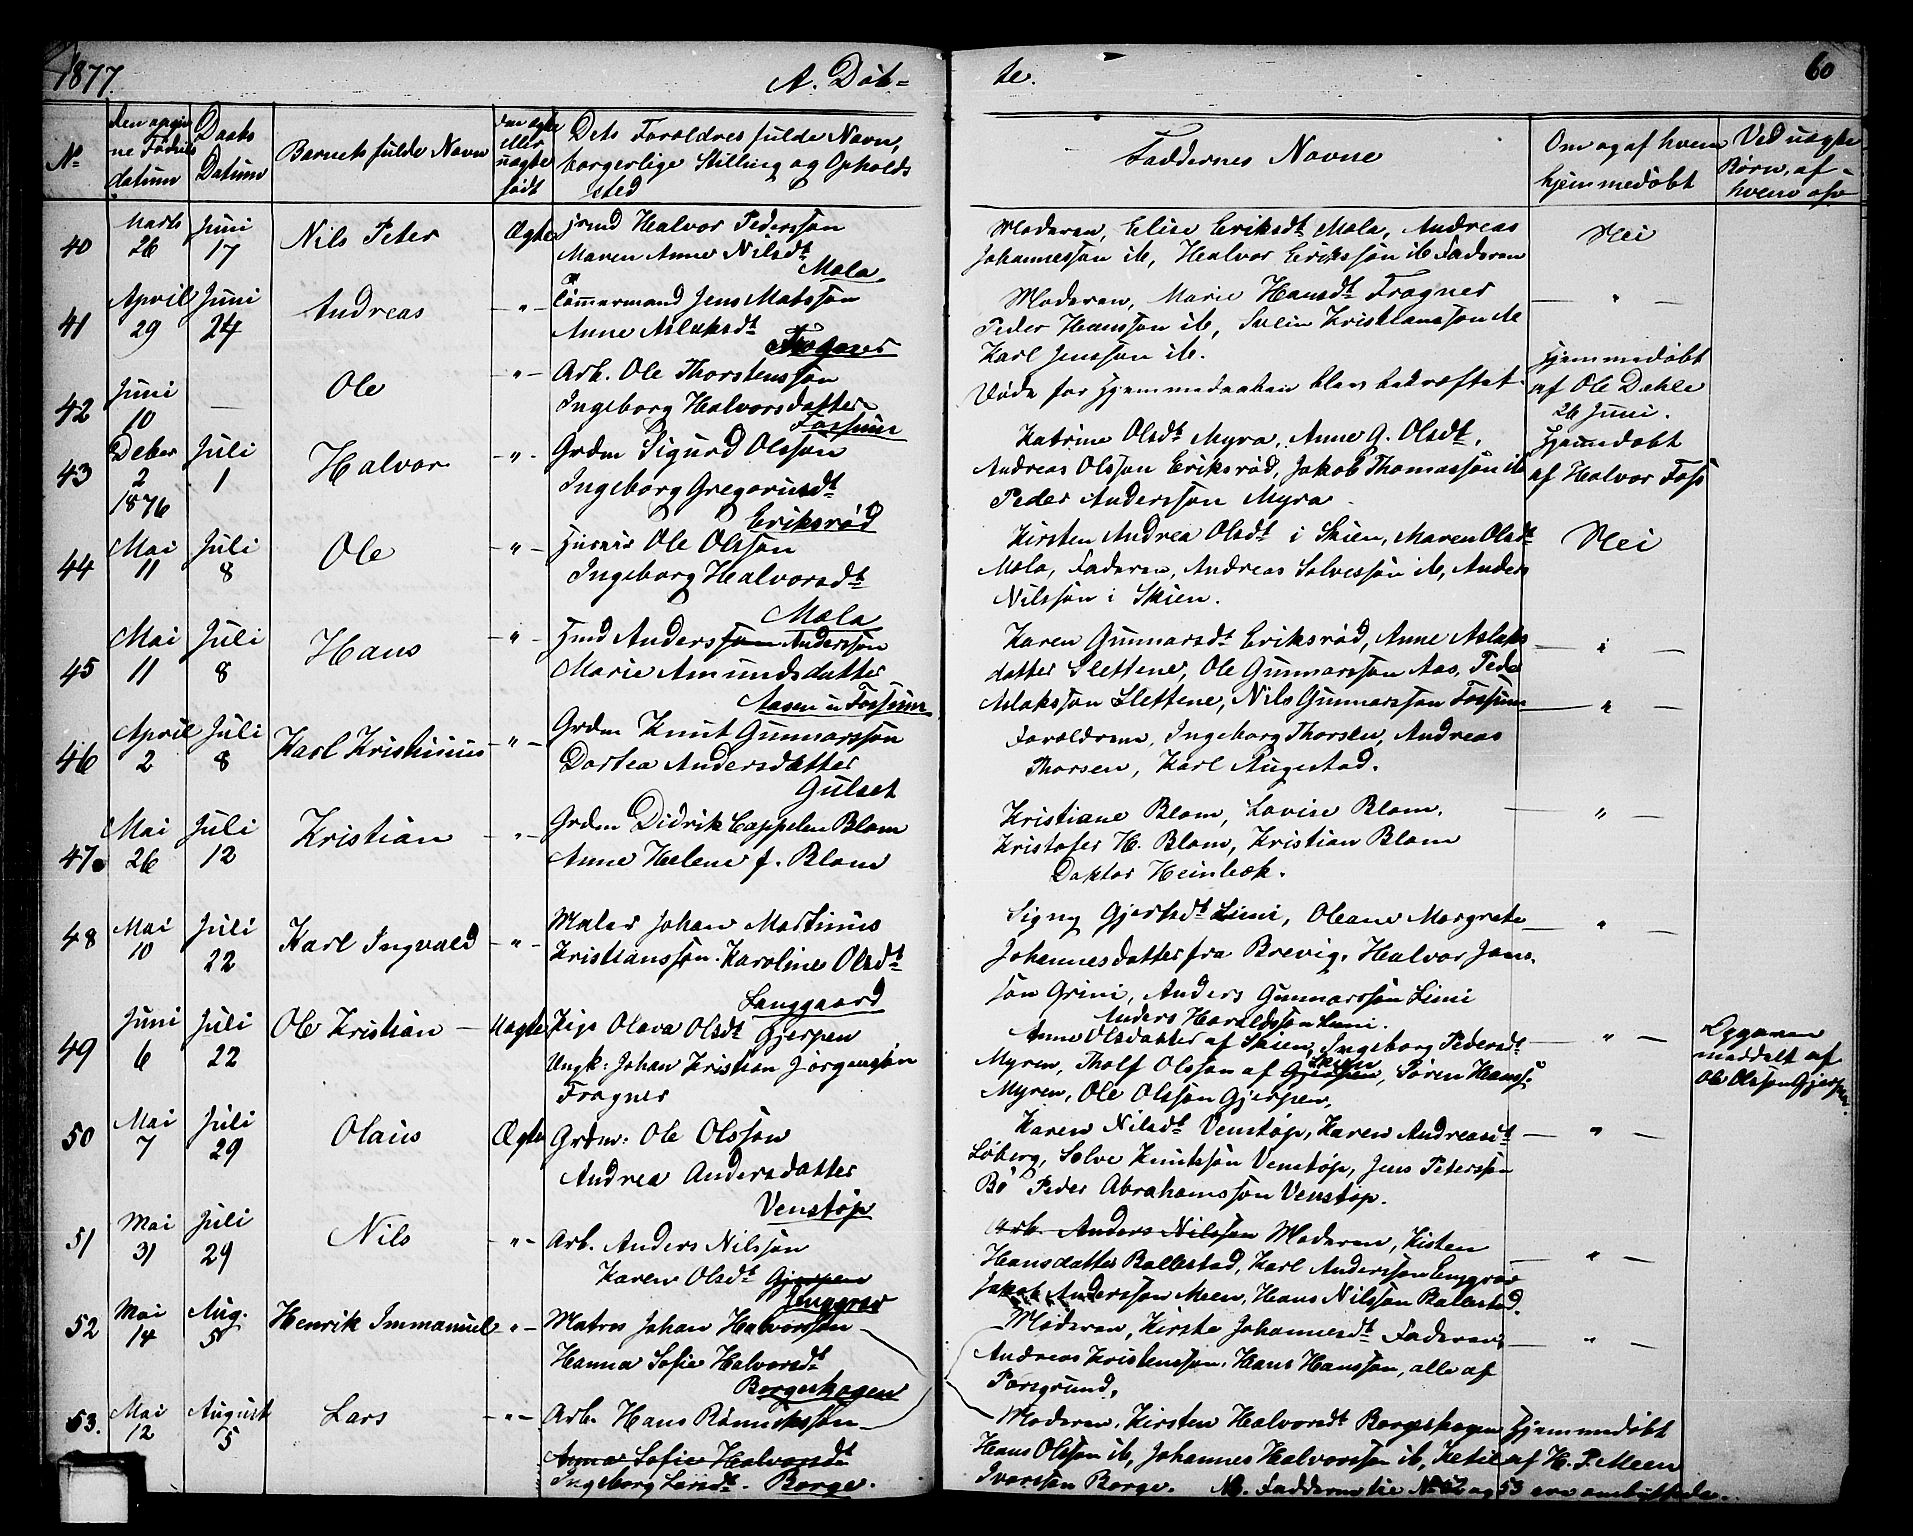 1877. A. Döb-
te. 60
No
Daabs Datum
Barnets fulde Navn
Dets Forældres fulde Navn,
borgerlige Stilling og Opholds
sted
Faddernes Navne
Om og af hvem
hjemmedøbt
Ved uægte
Børn, af
40 Marts 26 Juni 17 Nils Peter Ægte Halvor Pedersson
Maren Anne Nilsdt
Mæla
Moderen, Elise Eriksdt Mæla, Andreas
Johannesson ib, Halvor Eriksson ib Faderen
Nei
41 April 29 Juni 24 Andreas -"- Tömmermand Jens Matsson
Anne Aslaksdt
Frogner
Moderen, Marie Hansdt Frogner
Peder Hansson ib, Svein Kristiansson ib
Karl Jensson ib.
— " —
42 Juni 10 — Ole -"- Arb. Ole Thorstensson
Ingeborg Halvorsdatter
Fossum
Døde før Hjemmedaaben blev bekræftet.
Hjemmedöbt
af Ole Dahle
26 Juni.
43 Deber 2 1876 Juli 1 Halvor -"- Grdm Sigurd Olsson
Ingeborg Gregoriusdt
Eriksröd
Katrine Olsdt Myra, Anne G. Olsdt,
Andreas Olsson Eriksröd, Jakob Thomasson ib
Peder Andersson Myra.
Hjemmedöbt
af Halvor Foss
44 Mai 11 Juli 8 Ole -"- Ole Olsson
Ingeborg Halvorsdt
Mæla
Kirsten Andrea Olsdt i Skien, Maren Olsdt
Mæla, Faderen, Andreas Solvesson ib, Anders
Nilsson i Skien.
Nei
45 Mai 11 Juli 8 Hans -"- Hmd Andersson Andersson
Marie Amundsdatter
Aasen u Fossum
Karen Gunnarsdt Eriksröd, Anne Aslaks
datter Slettene, Ole Gunnarsson Aas, Peder
Aslaksson Slettene, Nils Gunnarsson Fossum
— " —
46 April 2 Juli 8 Karl Kristinius -"- Grdm Knut Gunnarsson
Dortea Andersdatter
Gulset
Forældrene, Ingeborg Thorsen, Andreas
Thorsen, Karl Augestad.
— " —
47. Mai 26 Juli 12 Kristian -"- Grdm Didrik Cappelen Blom
Anne Helene f. Blom
Kristiane Blom, Lovise Blom.
Kristofer H. Blom, Kristian Blom
Doktor Heinbek.
— " —
48 Mai 10 Juli 22 Karl Ingvald -"- Maler Johan Martinius
Kristiansson. Karoline Olsdt
Langgaard
Signy Gjertsdt Limi, Oleane Margrete
Johannesdatter fra Brevig. Halvor Jans.
son Grini, Anders Gunnarsson Limi
Anders Haraldsson Limi.
— " —
49 Juni 6 Juli 22 Ole Kristian — Uægte Pige Olava Olsdt Gjerpen
Ungk: Johan Kristian Jörgensson
Frogner
Anne Olsdatter af Skien, Ingeborg Pedersdt
Myren, Tholf Olsson af Gjerpen Skien, Sören Hanss:
Myren, Ole Olsson Gjerpen.
— " —
Opgaven
meddelt af
Ole Olsson Gjerpen.
50 Mai 7 Juli 29 Olaus Ægte Grdm: Ole Olsson
Andrea Andersdatter
Venstöp
Karen Nilsdt Venstöp, Karen Andreasdt
Löberg, Sölve Knutsson Venstöp, Jens Petersson
Bö Peder Abrahamsson Venstöp.
— " —
51 Mai 31 Juli 29 Nils -"- Arb. Anders Nilsson
Karen Olsdt Gjerpen
Enggrav
Arb. Anders Nilsson Moderen, Kisten
Hansdatter Ballestad, Karl Andersson Enggrav
Jakob Andersson Meen, Hans Nilsson Ballestad.
— " —
52 Mai 14 Aug. 5 Henrik Immanuel -"- Matros Johan Halvorsson
Hanna Sofie Halvorsdt
Borgeskogen
Moderen, Kirste Johannesdt Faderen,
Andreas Kristensson, Hans Hansson, alle af
Porsgrund.
— " —
53. Mai 12 August 5 Lars -"- Arb. Hans
Anna Sofie Halvorsdt
Ingeborg Larsdt. Borge.
Moderen. Kirsten Halvorsdt Borgeskogen
Hans Olsson ib, Johannes Halvorsson ib, Ketil
Ivarsson Borge.
Hjemmedöbt
af H. P. Meen
NB. Fadderne til No 52 og 53 ere ombyttede.